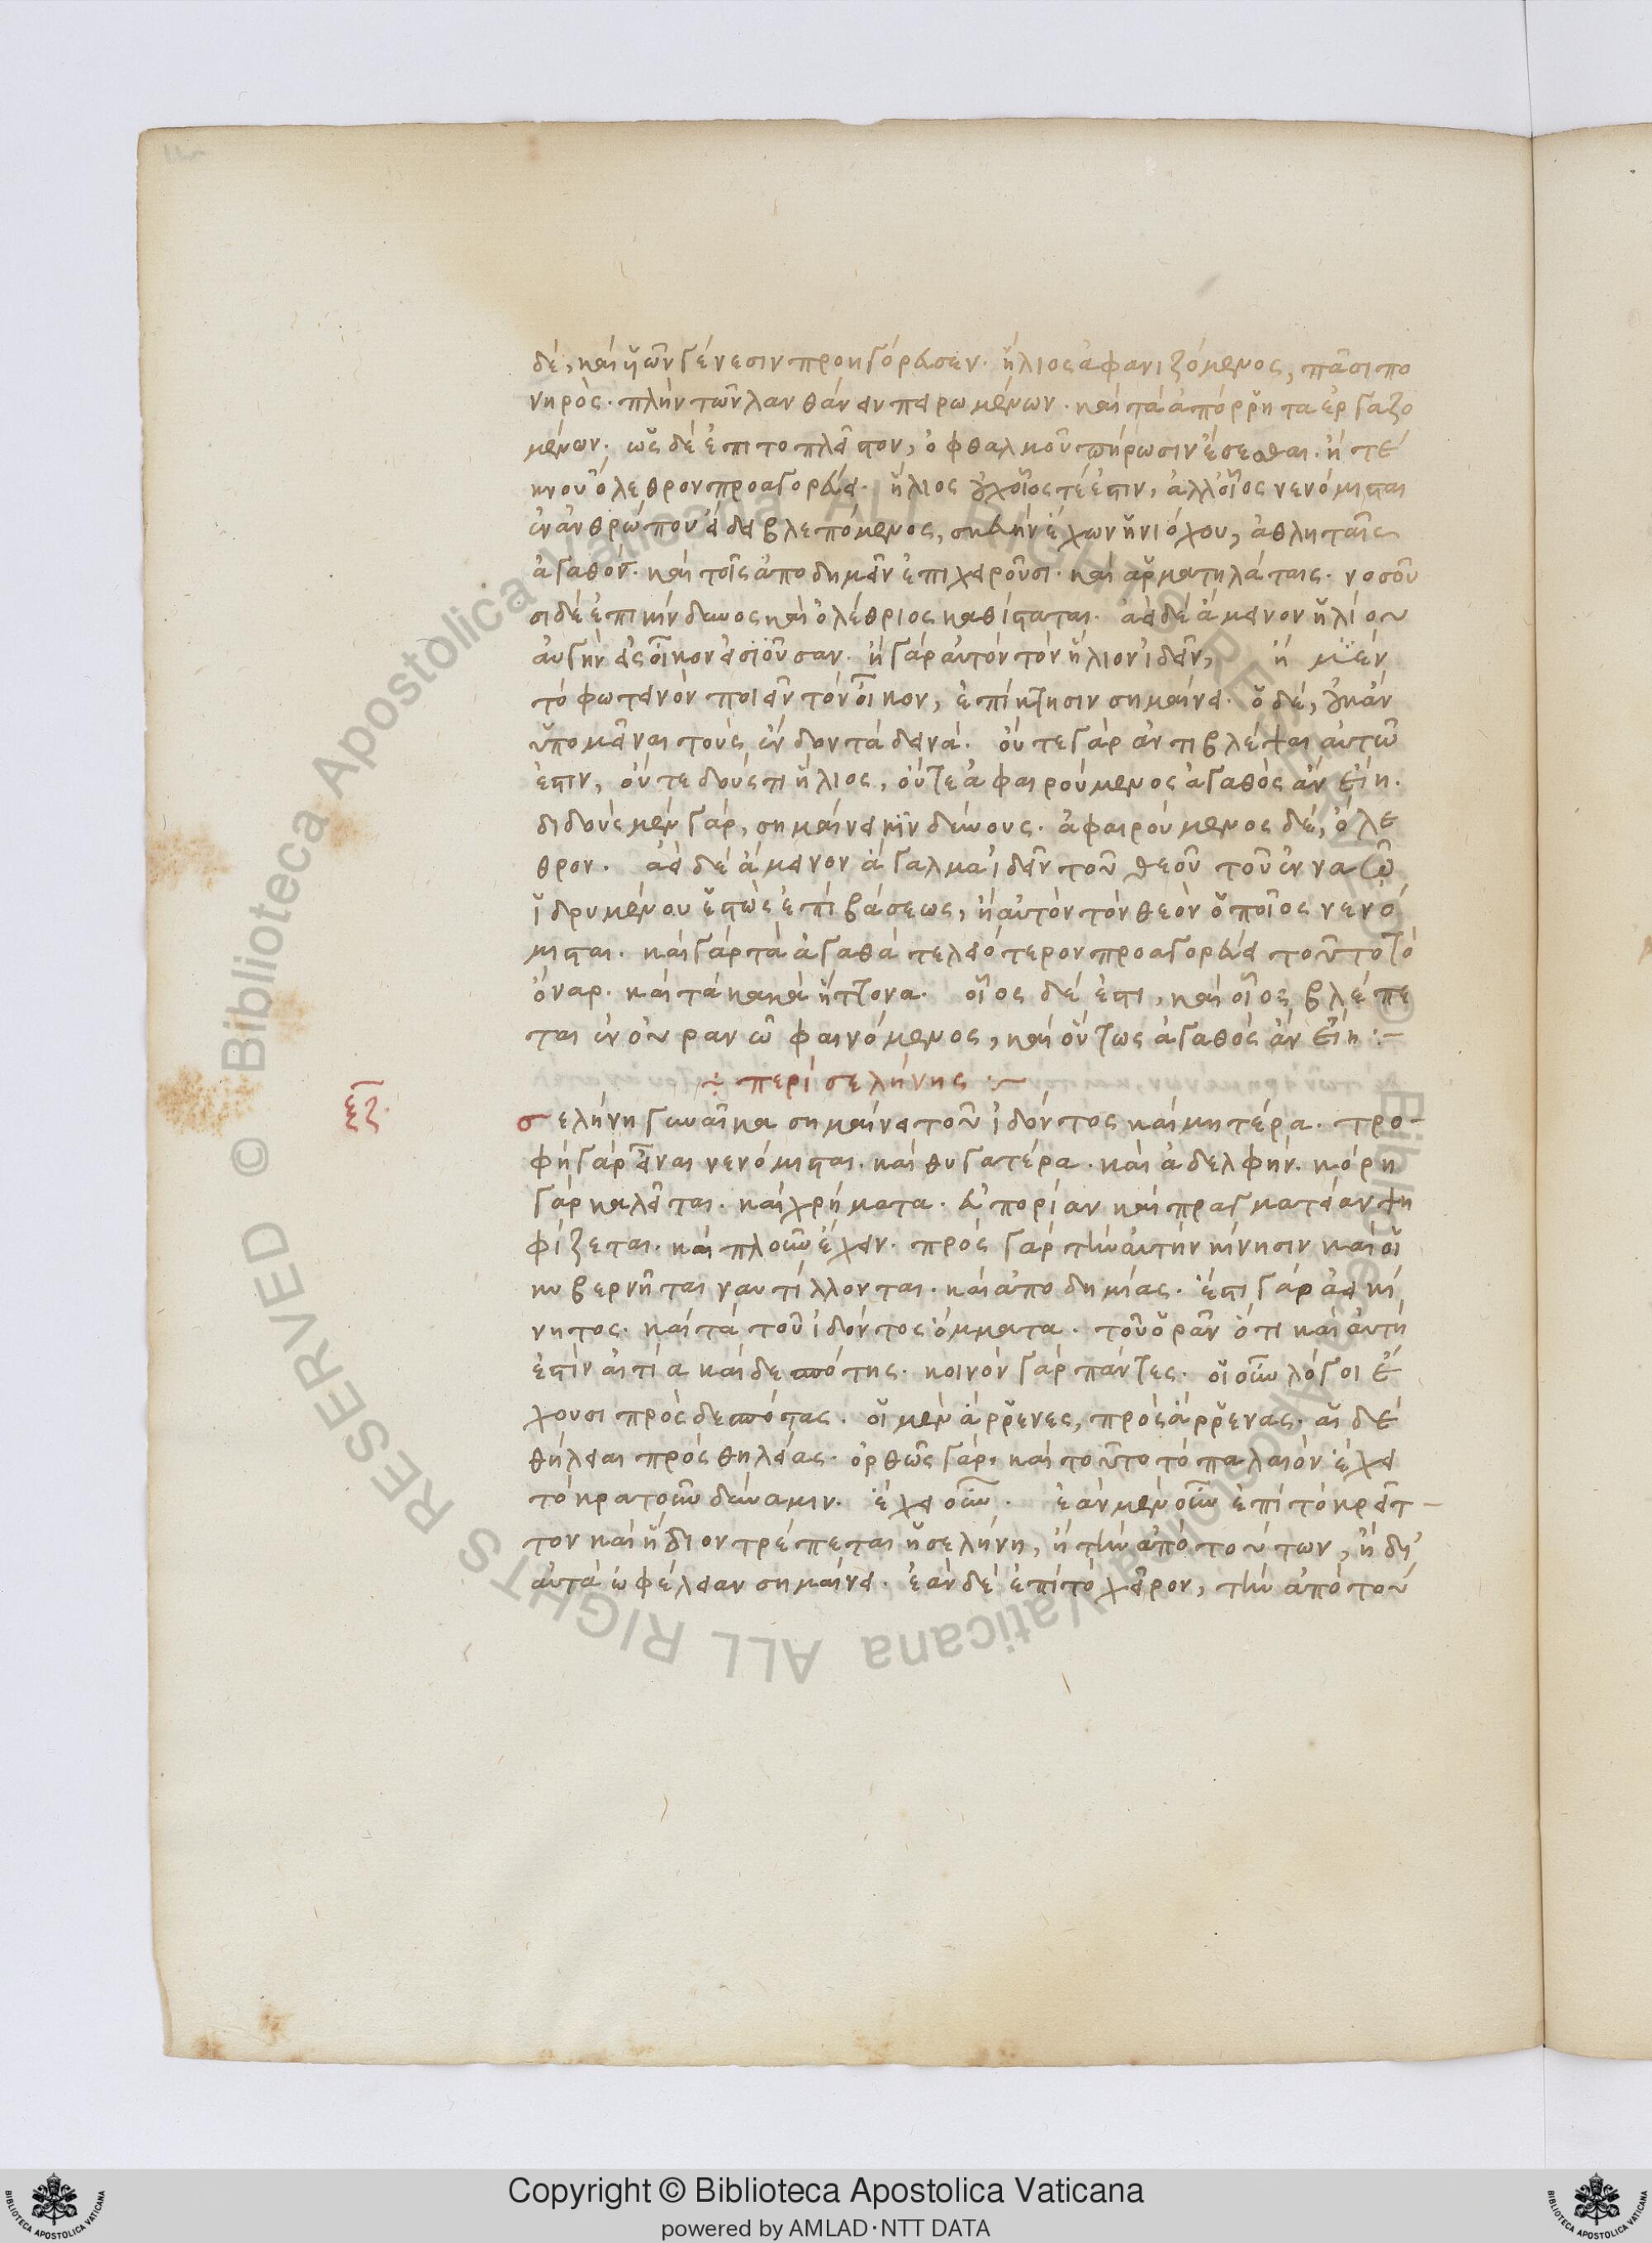 δὲ, καὶ ὑῶν γένεσιν προηγόρευσεν. ἥλιος ἀφανιζόμενος, πᾶσι πο
νηρὸς. πλὴν τῶν λανθάνειν πειρωμένων. καὶ τὰ ἀπόρρητα ἐργαζο
μένων. ὡς δὲ ἐπιτοπλεῖστον, ὀφθαλμοῦ πήρωσιν ἔσεσθαι. ἢ τέ
κνου ὄλεθρον προαγορεύει. ἥλιος οὐχ οἷος τέ ἐστιν, ἀλλ' οἷος νενόμισται
ἐν ἀνθρώπου εἴδει βλεπόμενος, σκευὴν ἔχων ἡνιόχου, ἀθληταῖς
ἀγαθόν. καὶ τοῖς ἀποδημεῖν ἐπιχειροῦσι. καὶ ἁρματηλάταις. νοσοῦ
σι δὲ ἐπικίνδυνος καὶ ὀλέθριος καθίσταται. ἀεὶ δὲ ἄμεινον ἡλίου
αὐγὴν εἰς οἶκον εἰσϊοῦσαν. ἢ γὰρ αὐτὸν τὸν ἥλιον ἰδεῖν, ἡ μὲν
τὸ φωτεινὸν ποιεῖν τὸν οἶκον, ἐπίκτησιν σημαίνει. ὁ δὲ, οὐκ ἂν
ὑπομεῖναι τοὺς ἔνδον τὰ δεινά. οὔτε γὰρ ἀντιβλέψαι αὐτῶ
ἔστιν, οὔτε δούς τι ἥλιος, οὔτε ἀφαιρούμενος ἀγαθὸς ἂν εἴη.
διδοὺς μὲν γὰρ, σημαίνει κινδύνους. ἀφαιρούμενος δὲ, ὄλε
θρον. ἀεὶ δὲ ἄμεινον ἄγαλμα ἰδεῖν τοῦ θεοῦ τοῦ ἐν ναῶ
ἱδρυμένου ἑστὼς ἐπὶ βάσεως, ἢ αὐτὸν τὸν θεὸν ὁποῖος νενό
μισται. καὶ γὰρ τὰ ἀγαθὰ τελειότερον προαγορεύει τοῦτο τὸ
ὄναρ. καὶ τὰ κακὰ ἥττονα. οἷος δέ ἐστι, καὶ οἷος βλέπε
ται ἐν οὐρανῶ φαινόμενος, καὶ οὕτως ἀγαθὸς ἂν εἴη :-
÷ περὶ σελήνης :-
ξζ.
σελήνη γυναῖκα σημαίνει τοῦ ἰδόντος καὶ μητέρα. τρο-
φὴ γὰρ εἶναι νενόμισται. καὶ θυγατέρα. καὶ ἀδελφήν. κόρη
γὰρ καλεῖται. καὶ χρήματα. εὐπορίαν καὶ πραγματείαν ψη
φίζεται. καὶ πλοῦν ἔχειν. πρὸς γὰρ τὴν αὐτὴν κίνησιν καὶ οἱ
κυβερνῆται ναυτίλλονται. καὶ ἀποδημίας. ἔστι γὰρ ἀεικί
νητος. καὶ τὰ τοῦ ἰδόντος ὄμματα. τοῦ ὁρᾶν ὅτι καὶ αὐτή
ἐστὶν αἰτία καὶ δεσπότης. κοινὸν γὰρ πάντες. οἱ οὖν λόγοι ἔ
χουσι πρὸς δεσπότας. οἱ μὲν ἄρρενες, πρὸς ἄρρενας. αἱ δὲ
θήλειαι πρὸς θηλείας. ὀρθῶς γὰρ. καὶ τοῦτο τὸ παλαιὸν ἔχει
τὸ κρατοῦν δύναμιν. ἔχει οὖν. ἐὰν μὲν οὖν ἐπὶ τὸ κρεῖτ-
τον καὶ ἥδιον τρέπεται ἡ σελήνη, ἢ τὴν ἀπὸ τούτων, ἢ δι'
αὐτὰ ὠφέλειαν σημαίνει. ἐὰν δὲ ἐπὶ τὸ χεῖρον, τὴν ἀπὸ τού
© Biblioteca Apostolica Vaticana ALL RIGHTS RESERVED
© Biblioteca Apostolica Vaticana ALL RIGHTS RESERVED
Copyright © Biblioteca Apostolica Vaticana
powered by AMLAD·NTT DATA
BIBLIOTECA APOSTOLICA VATICANA
BIBLIOTECA APOSTOLICA VATICANA